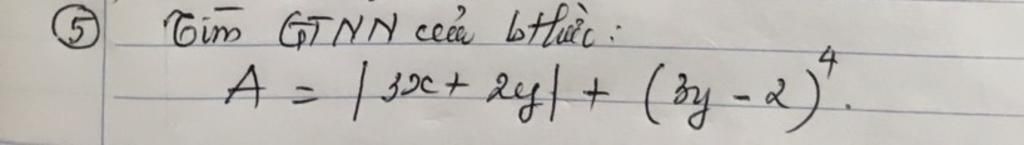 ⑤ Tìm GTNN của bthức:
A = |3x + 2y| + (3y - 2)⁴.